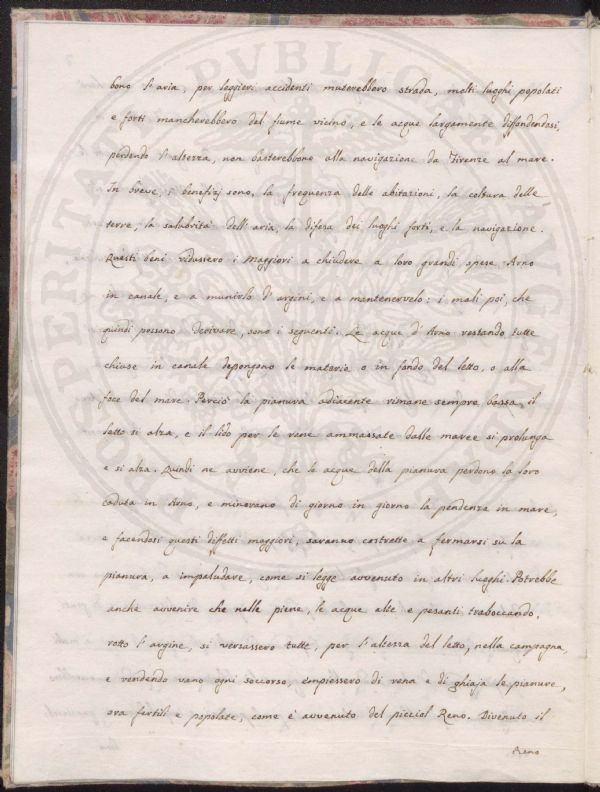 bono l'aria, per leggieri accidenti muterebbero strada, molti luoghi popolati
e forti mancherebbero del fiume vicino, e le acque largamente diffondendosi,
perdendo l'altezza, non basterebbono alla navigazione da Firenze al mare.
In breve, i benefizj sono, la frequenza delle abitazioni, la coltura delle
terre, la salubrità dell'aria, la difesa dei luoghi forti, e la navigazione.
Questi beni ridussero i Maggiori a chiudere a loro grandi spese Arno
in canale, e a munirlo d'argini, e a mantenervelo: i mali poi, che
quindi possono derivare, sono i seguenti. Le acque d'Arno restando tutte
chiuse in canale depongono le materie o in fondo del letto, o alla
foce del mare. Perciò la pianura adiacente rimane sempre bassa, il
letto si alza, e il lido per le rene ammassate dalle maree si prolunga
e si alza. Quindi ne avviene, che le acque della pianura perdono la loro
caduta in Arno, e minorano di giorno in giorno la pendenza in mare,
e facendosi questi diffetti maggiori, saranno costrette a fermarsi su la
pianura, a impaludare, come si legge avvenuto in altri luoghi. Potrebbe
anche avvenire che nelle piene, le acque alte e pesanti traboccando,
rotto l'argine, si versassero tutte, per l'altezza del letto, nella campagna,
e rendendo vano ogni soccorso, empiessero di rena e di ghiaja le pianure,
ora fertili e popolate, come è avvenuto del picciol Reno. Divenuto il
Reno
PVBLICAE